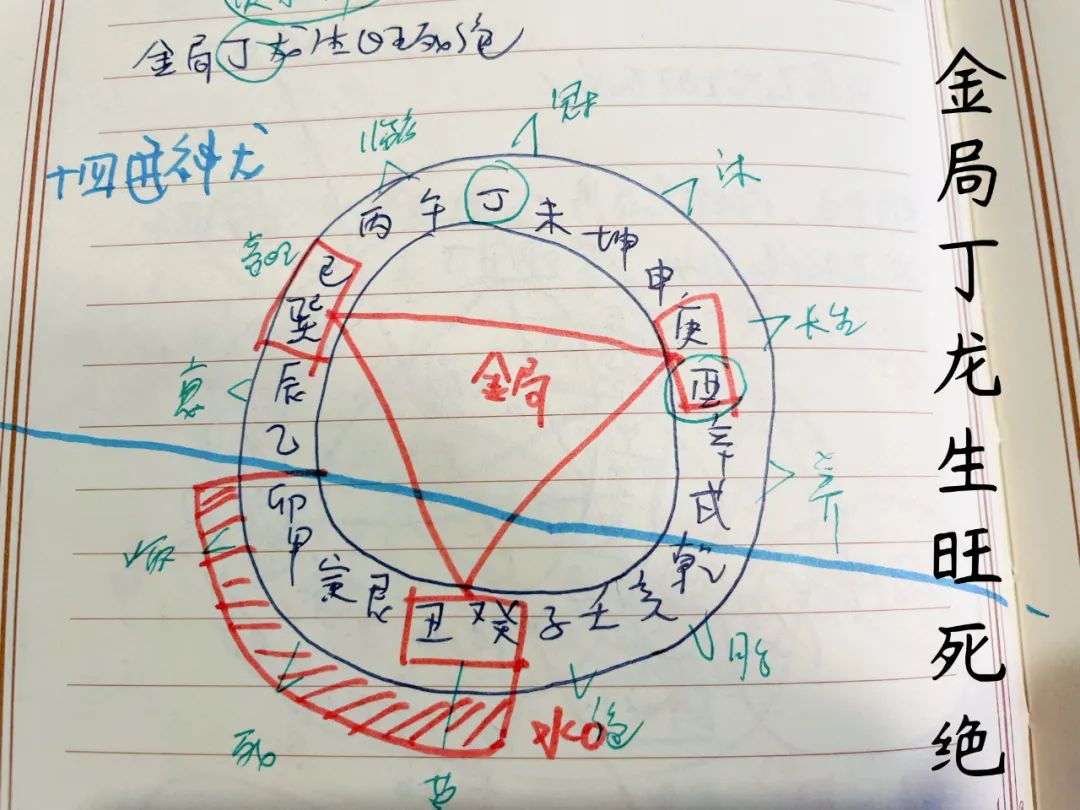 金局丁龙生旺死绝
十四进神
临
冠
沐
丙午丁未坤申庚酉辛戌乾亥壬子癸丑艮寅甲卯乙辰巽巳
长生
金局
衰
养
病
胎
死
水口
绝
墓
金局丁龙生旺死绝